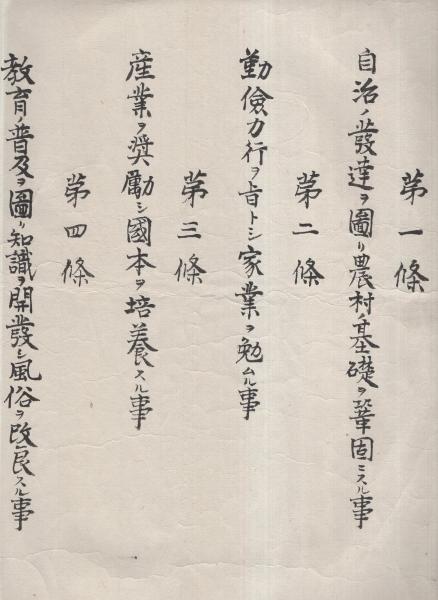 第一條
自治ノ發達ヲ圖リ農村ノ基礎ヲ鞏固ニスル事
第二條
勤儉力行ヲ旨トシ家業ヲ勉ムル事
第三條
産業ヲ奨勵シ國本ヲ培養スル事
第四條
教育ノ普及ヲ圖リ知識ヲ開發シ風俗ヲ改良スル事